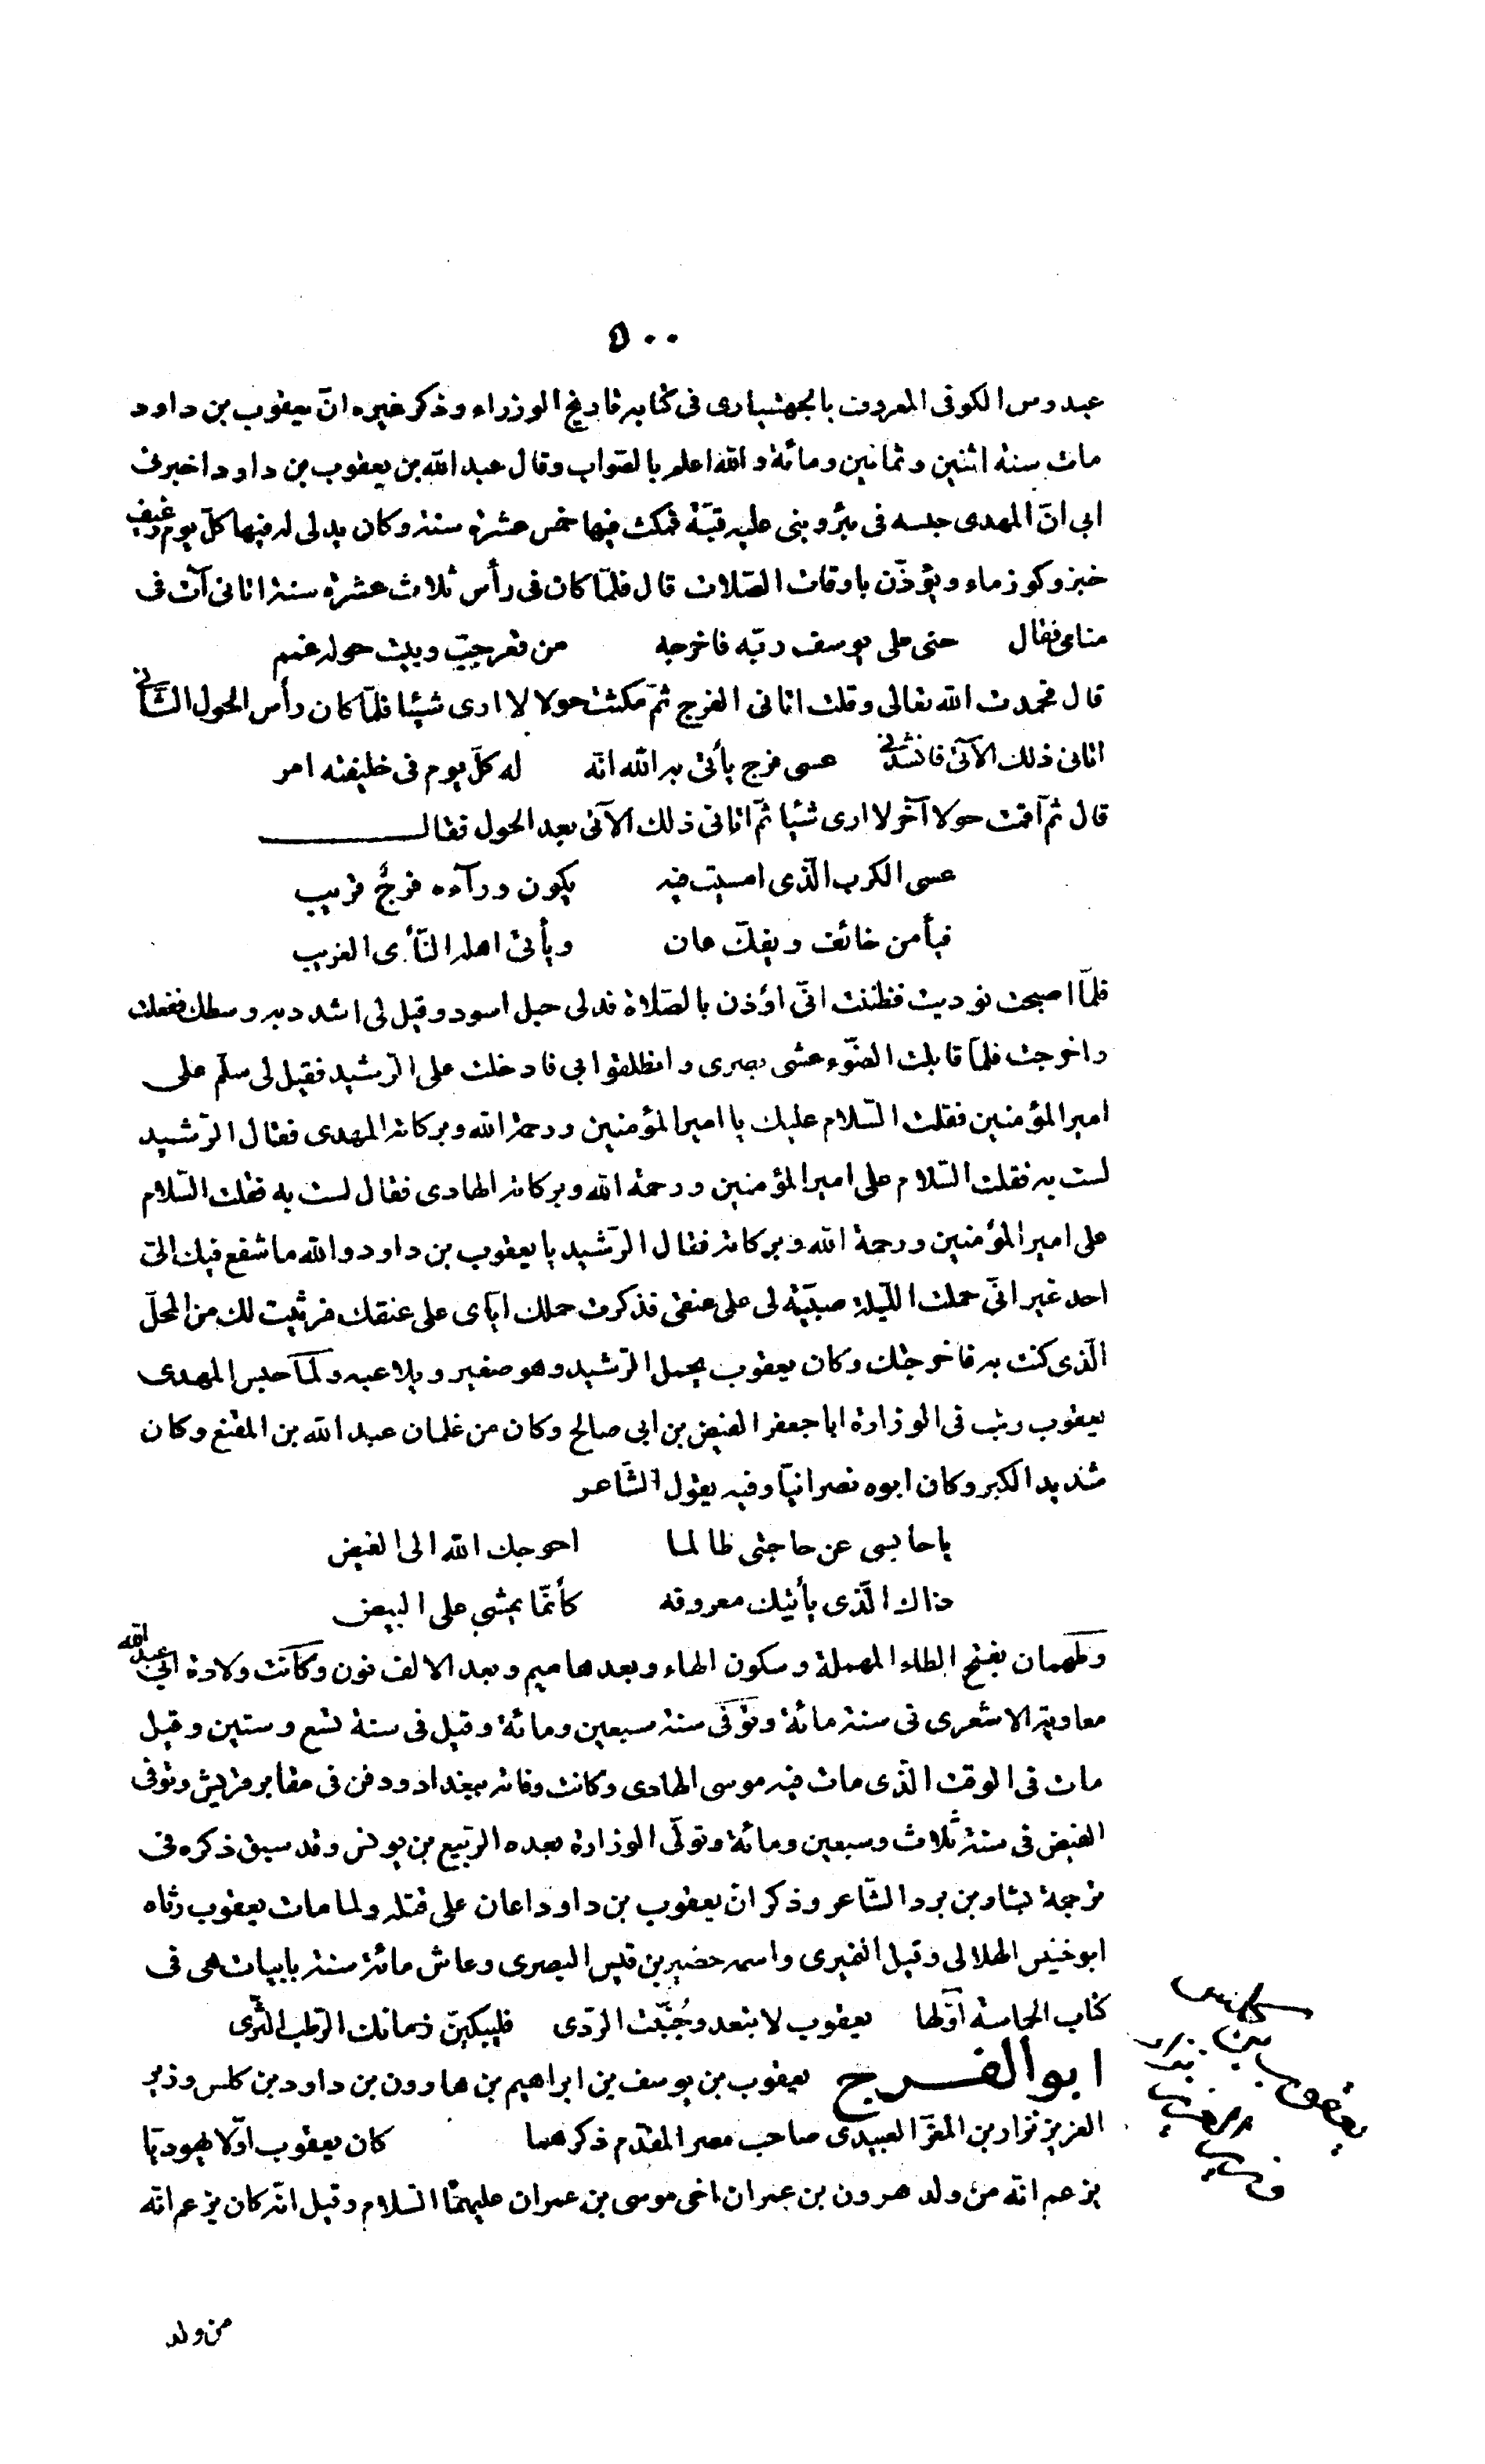 ٥٠٠
عبدوس الكوفى المعروف بالجهشيارى فى كتابه تاريخ الوزراء وذكر غيره انّ يعقوب بن داود
مات سنة اثنين وثمانين ومائة والله اعلم بالصّواب وقال عبد الله بن يعقوب بن داود اخبرنى
ابى انّ المهدى حبسه فى بئر وبنى عليه قبّة فمكث فيها خمس عشرة سنة وكان يدلى له فيها كلّ يوم رغيف
خبز وكوز ماء ويؤذّن باوقات الصّلات قال فلمّا كان فى رأس ثلاث عشرة سنة اتانى آت فى
منامى فقال حنى على يوسف ربّه فاخرجه من قعر جبّ وبيت حوله غمم
قال فحمدت الله تعالى وقلت اتانى الفرج ثمّ مكثت حولا لا ارى شيئا فلمّا كان رأس الحول الثّانى
اتانى ذلك الآتى فانشدنى عسى فرج يأتى به الله انّه له كلّ يوم فى خليقته امر
قال ثمّ اقمت حولا آخر لا ارى شيئا ثمّ اتانى ذلك الآتى بعد الحول فقال
عسى الكرب الّذى امسيت فيه يكون ورآءه فرجٌ قريب
فيأمن خائف ويفكّ عان ويأتى اهله النّآءى الغريب
فلمّا اصبحت نوديت فظننت انّى اؤذن بالصّلاة فدلى حبل اسود وقيل لى اشدد به وسطك ففعلت
واخرجت فلمّا قابلت الضّوء عشى بصرى وانطلقوا بى فادخلت على الرّشيد فقيل لى سلّم على
امير المؤمنين فقلت السّلام عليك يا امير المؤمنين ورحمة الله وبركاته المهدى فقال الرّشيد
لست به فقلت السّلام على امير المؤمنين ورحمة الله وبركاته الهادى فقال لست به فقلت السّلام
على امير المؤمنين ورحمة الله وبركاته فقال الرّشيد يا يعقوب بن داود والله ما شفع فيك الىّ
احد غير انّى حملت اللّيلة صبيّة لى على عنقى فذكرت حملك ايّاى على عنقك فرثيت لك من المحلّ
الّذى كنت به فاخرجتك وكان يعقوب يحمل الرّشيد وهو صغير ويلاعبه ولمّا حبس المهدى
يعقوب رتب فى الوزارة ابا جعفر الفيض بن ابى صالح وكان من غلمان عبد الله بن المقفع وكان
شديد الكبر وكان ابوه نصرانيّا وفيه يقول الشّاعر
يا حابسى عن حاجتى ظالما احوجك الله الى الفيض
ذاك الّذى يأتيك معروفه كأنّما يمشى على البيض
وطهمان بفتح الطاء المهملة وسكون الهاء وبعدها ميم وبعد الالف نون وكانت ولادة ابى عبد الله
معاوية الاشعرى فى سنة مائة وتوفّى سنة سبعين ومائة وقيل فى سنة تسع وستين وقيل
مات فى الوقت الذى مات فيه موسى الهادى وكانت وفاته ببغداد ودفن فى مقابر قريش وتوفى
الفيض فى سنة ثلاث وسبعين ومائة وتولّى الوزارة بعده الربيع بن يونس وقد سبق ذكره فى
ترجمة بشار بن برد الشّاعر وذكر انّ يعقوب بن داود اعان على قتله ولما مات يعقوب رثاه
ابو خنيس الهلالى وقيل النميرى واسمه خضير بن قيس البصرى وعاش مائة سنة بابيات هى فى
كتاب الحماسة اوّلها يعقوب لا تبعد وجُنّبت الرّدى فليبكينّ زمانك الرّطب الثّرى
ابو الفرج يعقوب بن يوسف بن ابراهيم بن هارون بن داود بن كلس وزير
العزيز نزار بن المعزّ العبيدى صاحب مصر المقدّم ذكرهما كان يعقوب اوّلا يهوديّا
يزعم انّه من ولد هرون بن عمران اخى موسى بن عمران عليهمّا السّلام وقيل انّه كان يزعم انّه
يعقوب بن كلس
وزير العزيز
من ولد